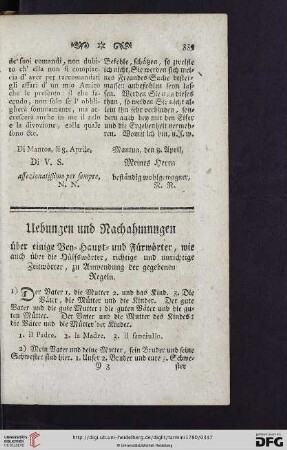 de' suoi comandi, non dubi-
to ch' ella non si compiac-
cia d' aver per raccomandati
gli affari d' un mio Amico
che le protesto: il che fa-
cendo, non solo le l' obbli-
gherà sommamente, ma ac-
crescerà anche in me il zelo
e la divozione, colla quale
sono &c.
Di Manton, li 8. Aprile,
Di V. S.
affezionatissimo per sempre,
N. N.
Befehle, schätzen, so zweifle
ich nicht, Sie werden sich mei-
nes Freundes Sache bester-
massen anbefohlen seyn las-
sen. Werden Sie nun dieses
thun, so werden Sie nicht al-
lein ihn sehr verbinden, son-
dern auch bey mir den Eifer
und die Ergebenheit vermeh-
ren. Womit ich bin, u. s. w.
Mantua, den 8. April,
Meines Herrn
beständig wohlgewogner,
N. N.
Uebungen und Nachahmungen
über einige Bey-Haupt- und Fürwörter, wie
auch über die Hülfswörter, richtige und unrichtige
Zeitwörter, zu Anwendung der gegebenen
Regeln.
1) Der Vater 1. die Mutter 2. und das Kind. 3. Die
Väter, die Mütter und die Kinder. Der gute
Vater und die gute Mutter: die guten Väter und die gu-
ten Mütter. Der Vater und die Mutter des Kindes:
die Väter und die Mütter der Kinder.
1. il Padre. 2. la Madre. 3. il fanciullo.
2) Mein Vater und deine Mutter, sein Bruder und seine
Schwester sind hier. 1. Unser 2. Bruder und eure 3. Schwe-
ster
http://digi.ub.uni-heidelberg.de/diglit/
© Universitätsbibliothek Heidelberg
gefördert durch die
DFG